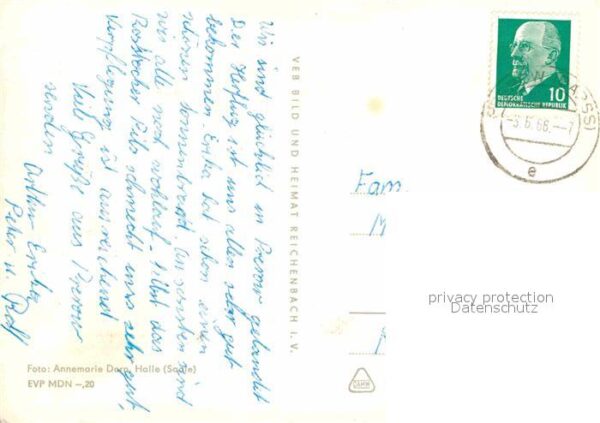 Wir sind glücklich in Prerow gelandet
Der Herflug ist uns allen sehr gut
bekommen. Erika hat schon einen
schönen Sonnenbrand. Ansonsten sind
wir alle noch wohlauf. Selbst das
Rostocker Sels schmeckt uns sehr gut,
Verpflegung ist ausreichend
Viele Grüße aus Prerow
senden
Arthur Erika
Peter u. Rolf
VEB BILD UND HEIMAT REICHENBACH I. V.
Foto: Annemarie Dorn, Halle (Saale)
EVP MDN –,20
10
DEUTSCHE
DEMOKRATISCHE REPUBLIK
-3.6.66.-7
e
Fam
M
privacy protection
Datenschutz